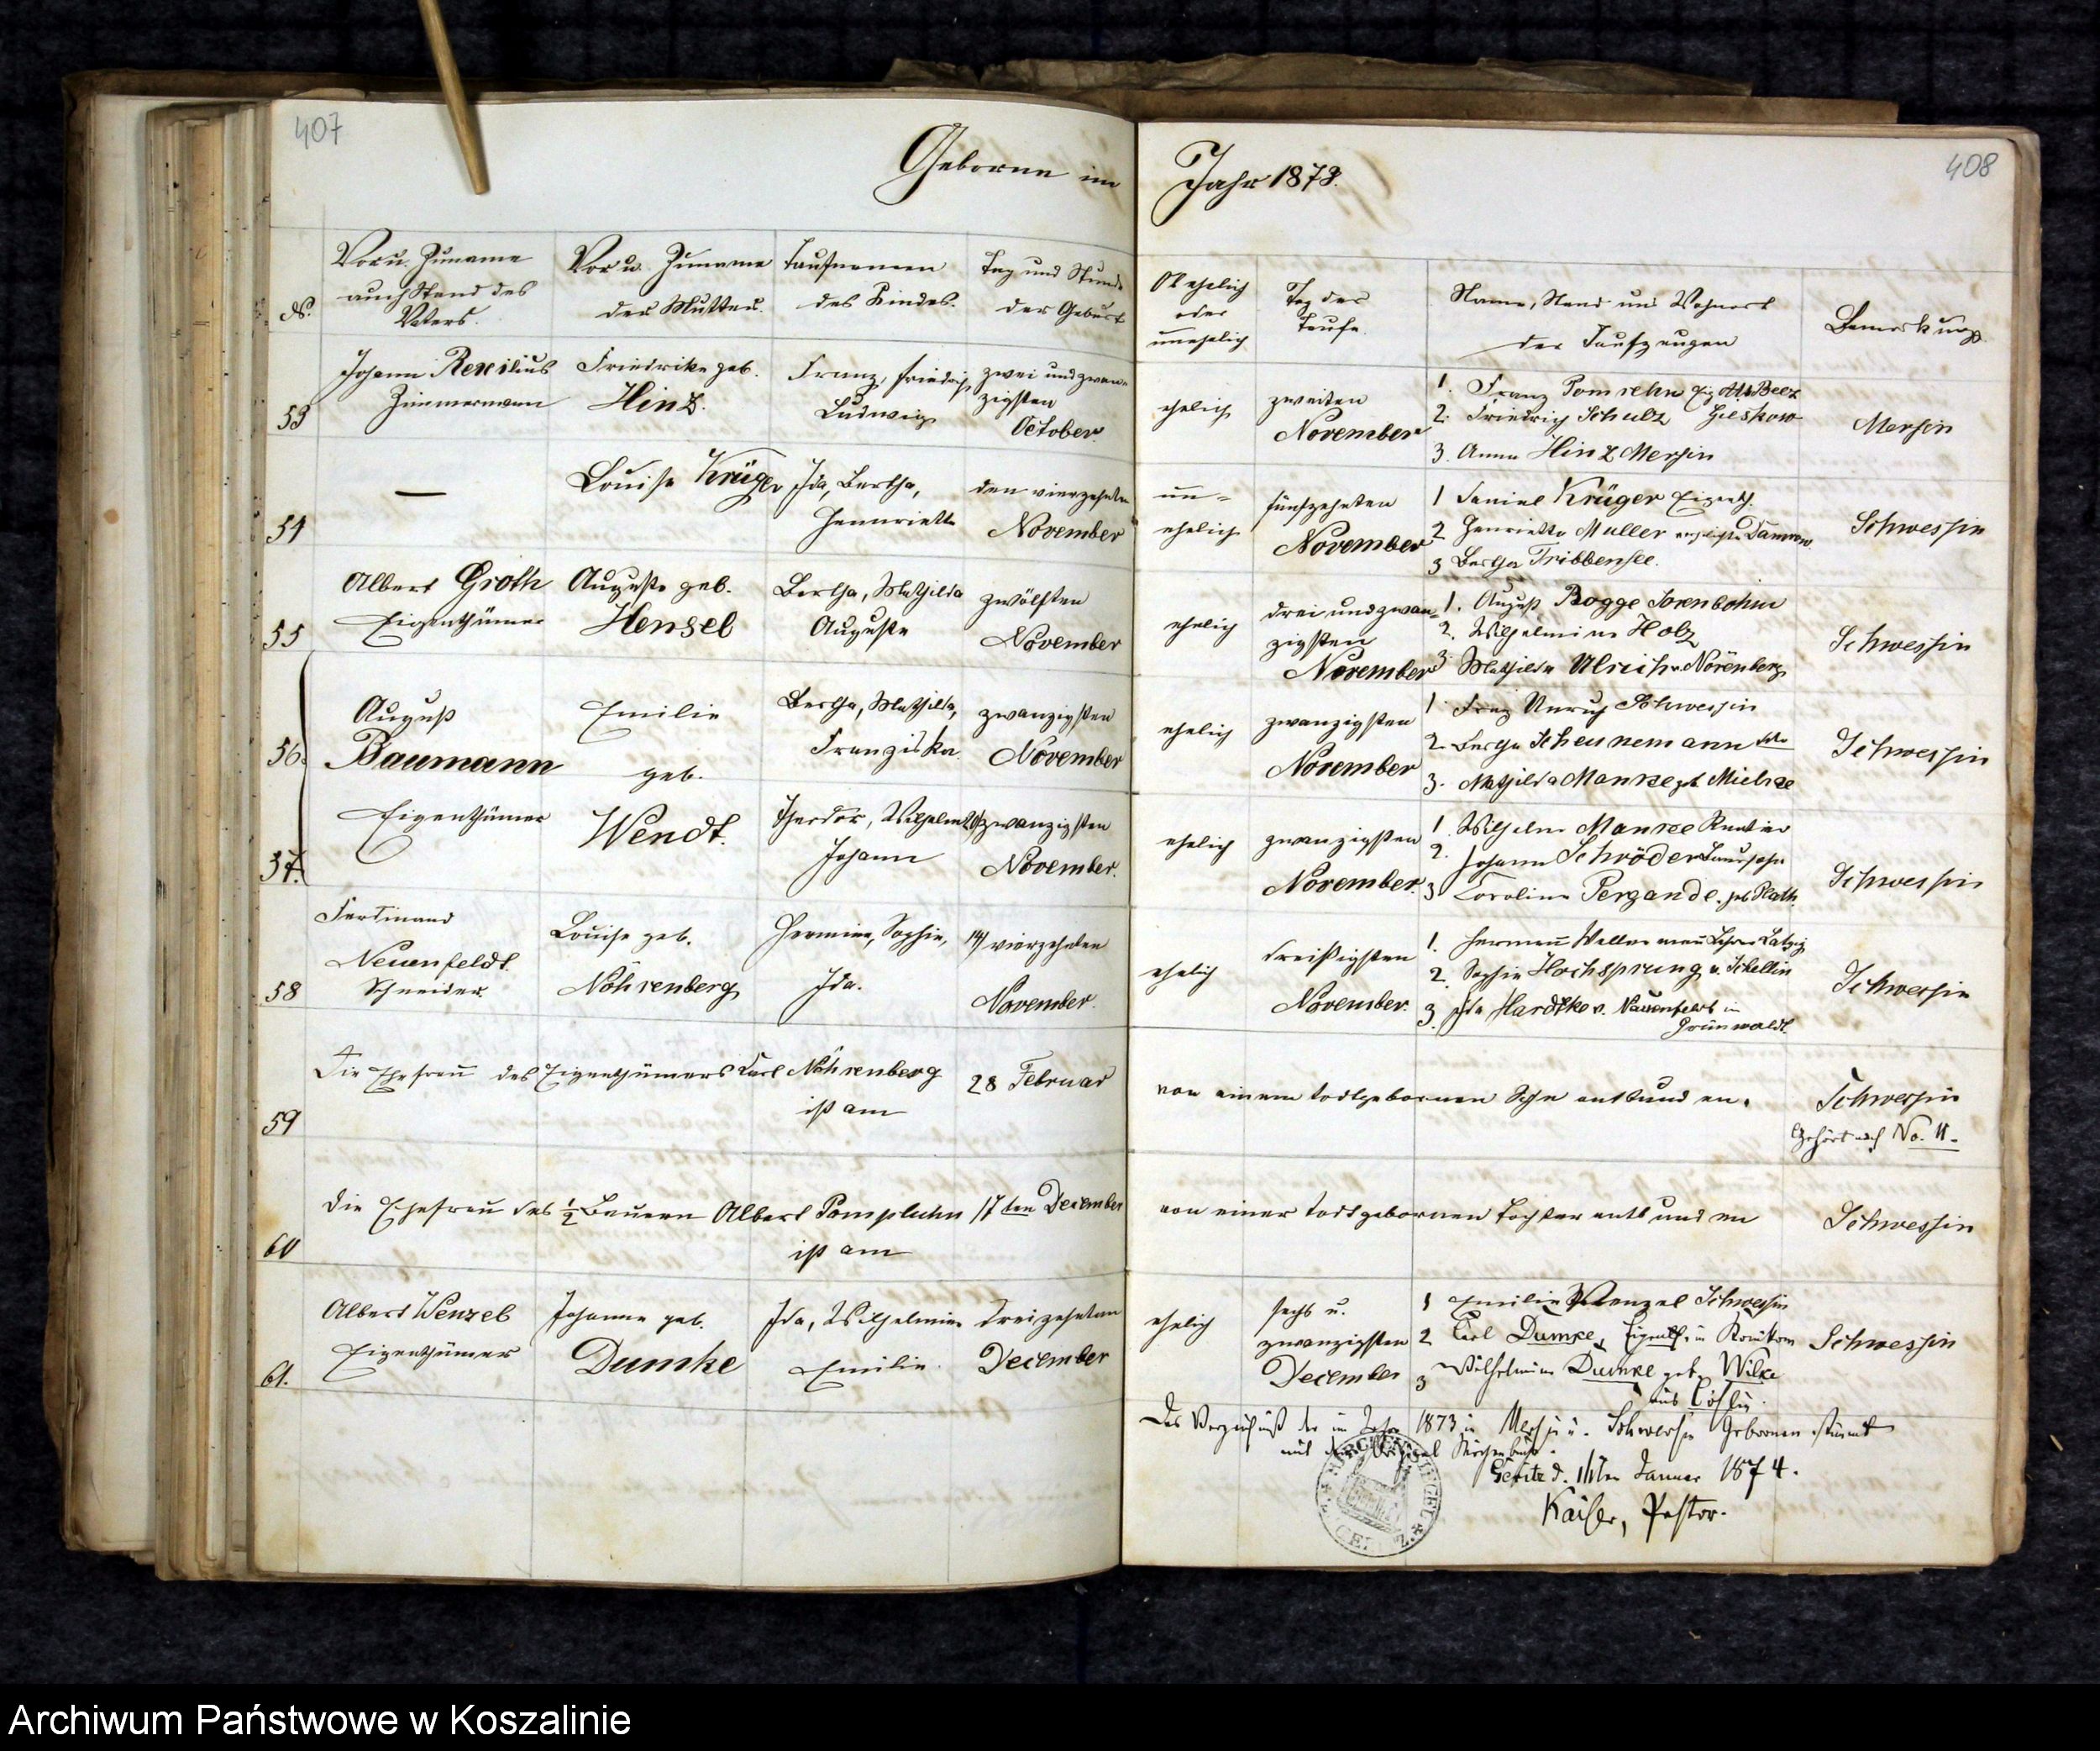 407
408
Geborne im Jahr 1873.
No.
Vor u. Zuname
auch Stand des
Vaters.
Vor u. Zuname
der Mutter.
Taufnamen
des Kindes.
Tag und Stunde
der Geburt
Ob ehelich
oder
unehelich
Tag der
Taufe.
Name, Stand und Wohnort
der Taufzeugen
Bemerkung.
53
Johann Rexilius
Zimmermann
Friedrike geb.
Hinz.
Franz, Friedrich
Ludwig
zwei und zwan-
zigsten
October.
ehelich
zweiten
November
1. Franz Pomrehn Eig. Alt Belz
2. Friedrich Schulz Geeskow
3. Anna Hinz Mersin
Mersin
54
—
Louise Krüger
Ida, Bertha,
Henriette
den vierzehnten
November
un-
ehelich
fünfzehnten
November
1 Daniel Krüger Eigenth.
2 Henriette Müller
3 Bertha Tribbensee.
Schwessin
55
Albert Groth
Eigenthümer
Auguste geb.
Hensel
Bertha, Mathilde
Auguste
zwölften
November
ehelich
drei und zwan-
zigsten
November
1. August Rogge Sorenbohm
2. Wilhelmine Holz
3. Mathilde Ulrich Nörenberg
Schwessin
56.
August
Baumann
Eigenthümer
Emilie
geb.
Wendt.
Bertha, Mathilde,
Franziska.
zwanzigsten
November
ehelich
zwanzigsten
November
1. Unruh Schwessin
2. Bertha Scheunemann dto
3. Mathilde Manke geb Mielke
Schwessin
57.
Theodor, Wilhelm
Johann
20/ zwanzigsten
November.
ehelich
zwanzigsten
November.
1. Wilhelm Manke Rentier
2. Johann Schröder
3 Caroline Pergande. geb Plath.
Schwessin
58
Ferdinand
Neuenfeldt.
Schneider.
Louise geb.
Nöhrenberg
Hermine, Sophie,
Ida.
14/ vierzehnten
November.
ehelich
dreißigsten
November.
1. Hermann Lehrer Latzig
2. Sophie Hochsprung v. Schellin
3. Ida Hardtke v. Nauenfeldt in
Grünwaldt.
Schwessin
59
Die Ehefrau des Eigenthümers Carl Nöhrenberg
ist am
28 Februar
von einem todtgebornen Sohn entbunden.
Schwessin
Gehört nach No. 11.
60
Die Ehefrau des ½ Bauern Albert Pompluhn
ist am
17ten December
von einer todtgebornen Tochter entbunden
Schwessin
61.
Albert Wenzel
Eigenthümer
Johanne geb.
Dumke
Ida, Wilhelmine
Emilie.
dreizehnten
December
ehelich
sechs u.
zwanzigsten
December
1 Emilie Wenzel Schwessin
2 Carl Dumke, Eigenth. in Konikow
3 Wilhelmine Dumke geb. Wilke
aus Cöslin.
Schwessin
Das Verzeichniß der im Jahre 1873 in Mersin u. Schwessin Gebornen stimmt
mit dem Original Kirchenbuch.
Geritz d. 11ten Januar 1874.
Kaiser, Pastor.
KIRCHENSIEGEL
Archiwum Państwowe w Koszalinie